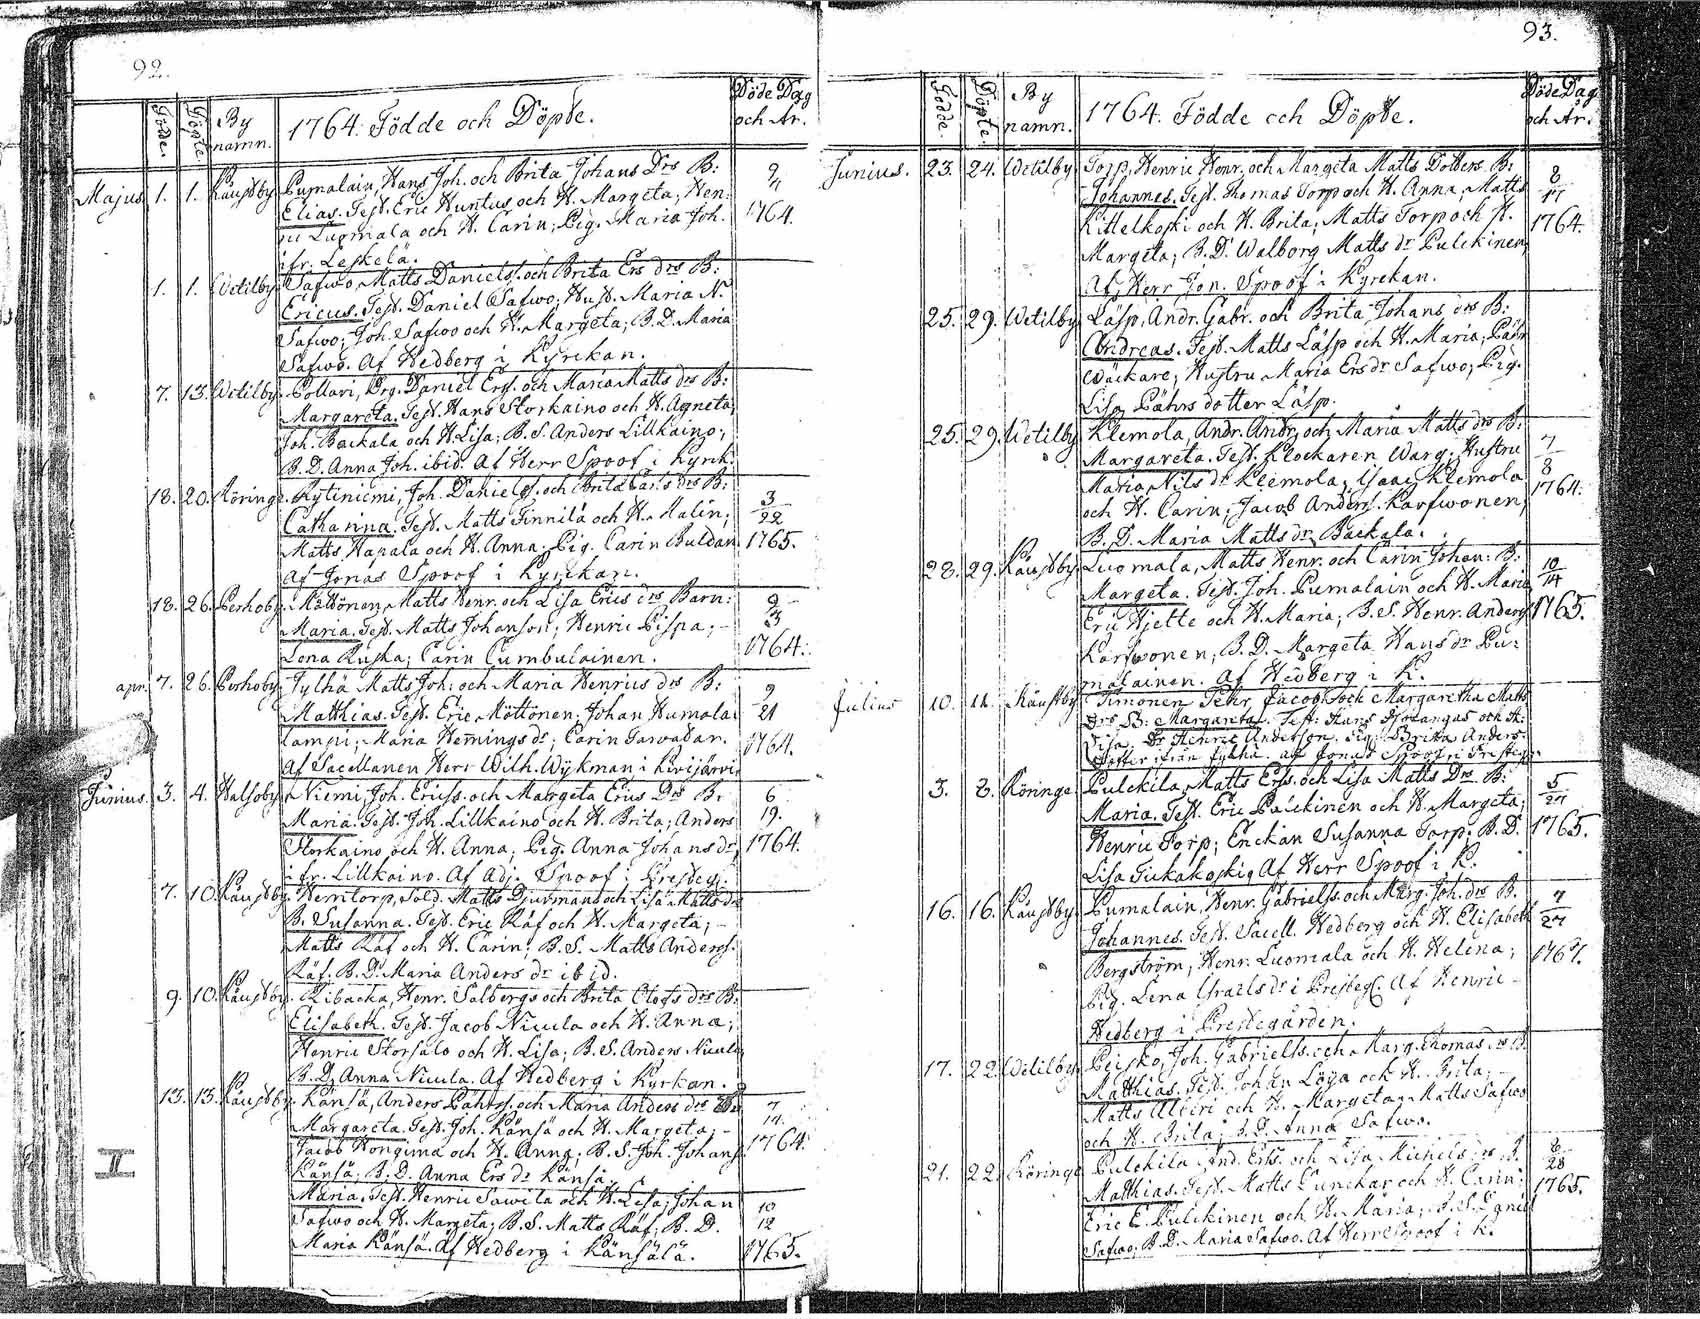 92.
Födde. Döpte. By namn. 1764. Födde och Döpte. Döde Dag och År.
Majus. 1. 1. Käustby. Pumalain, Hans Joh. och Brita Johans Drs B: 9/4
Elias. Test. Eric Huntus och H. Margeta, Hen: 1764.
ric Luomala och H. Carin; Pig. Maria Joh.
ifr. Leskelä.
1. 1. Wetilby. Safwo, Matts Daniels. och Brita Ers drs B:
Ericus. Test. Daniel Safwo; Hust. Maria N.
Safwo; Joh. Safwo och H. Margeta; B.D. Maria
Safwo. Af Hedberg i Kyrckan.
7. 13. Wetilby. Pollari, Drg. Daniel Ers. och Maria Matts drs B:
Margareta. Test. Hans Storkaino och H. Agneta;
Joh. Backala och H. Lisa; B.S. Anders Lillkaino;
B.D. Anna Joh. ibid. Af Herr Spoof i Kyrk.
18. 20. Röringe. Kytiniemi, Joh. Daniels. och Brita Carls drs B: 3/22
Catharina. Test. Matts Finnilä och H. Malin;
Matts Hapala och H. Anna; Pig. Carin Buldan 1765.
af Jonas Spoof i Kyrckan.
18. 26. Perhoby. Möttönen, Matts Henr. och Lisa Erics drs Barn: 9/3
Maria. Test. Matts Johanson; Henric Pispa; –
Lena Ruska; Carin Cumbulainen. 1764.
apr. 7. 26. Perhoby. Jylhä Matts Joh. och Maria Henrics drs B: 9/21
Matthias. Test. Eric Möttönen; Johan Humala:
lampi; Maria Hemings dr; Carin Tarvabar. 1764.
Af Sacellanen Herr Wilh. Wijkman i Kivijärvi.
Junius. 3. 4. Halsoby. Niemi, Joh. Ericss. och Margeta Erics Drs B: 6/19.
Maria. Test. Joh. Lillkaino och H. Brita; Anders
Storkaino och H. Anna; Pig. Anna Johans dr 1764.
ifr. Lillkaino. Af Adj. Spoof i Presteg.
7. 10. Käustby. Herritorp, Sold. Matts Djurman och Lisa Matts dr
B. Susanna. Test. Eric Räf och H. Margeta; –
Matts Räf och H. Carin; B.S. Matts Anderss.
Räf. B.D. Maria Anders dr ibid.
9. 10. Käustby. Ribacka, Henr. Salbergs och Brita Olofs drs B:
Elisabeth. Test. Jacob Nicula och H. Anna;
Henric Storsalo och H. Lisa; B.S. Anders Nicula
B.D. Anna Nicula. Af Hedberg i Kyrkan.
13. 13. Käustby. Känsä, Anders Pährss. och Maria Anders drs 7/14
Margareta. Test. Joh. Känsä och H. Margeta; –
Jacob Honguna och H. Anna; B.S. Joh. Johans 1764.
Känsä; B.D. Anna Ers dr Känsä.
II
Maria. Test. Henric Sawila och H. Lisa; Johan 10/12
Safwo och H. Margeta; B.S. Matts Räf; B.D.
Maria Känsä. Af Hedberg i Känsälä. 1765.
93.
Födde. Döpte. By namn. 1764. Födde och Döpte. Döde Dag och År.
Junius. 23. 24. Wetilby. Torp, Henric Henr. och Margeta Matts Dotters B: 8/17
Johannes. Test. Thomas Torp och H. Anna; Matts
Kittelkoski och H. Brita; Matts Torp och H. 1764.
Margeta; B.D. Walborg Matts dr Pulckinen,
Af Herr Jon. Spoof i Kyrckan.
25. 29. Wetilby. Läsp, Andr. Gabr. och Brita Johans drs B:
Andreas. Test. Matts Läsp och H. Maria; Pähr
Wäckare; Hustru Maria Ers dr Safwo; Pig.
Lisa Pährs dotter Läsp.
25. 29. Wetilby. Klemola, Andr. Andr. och Maria Matts drs B: 7/8
Margareta. Test. Klockaren Warg; Hustru
Maria Nils dr Klemola; Isaac Klemola 1764.
och H. Carin; Jacob Anders. Karfwonen;
B.D. Maria Matts dr Backala.
28. 29. Käustby. Luomala, Matts Henr. och Carin Johan: B: 10/14
Margeta. Test. Joh. Pumalain och H. Maria
Eric Hjette och H. Maria; B.S. Henr. Anders. 1765.
Karfwonen; B.D. Margeta Hans dr Pu:
malainen. Af Hedberg i K.
Julius 10. 11. Käustby Timonen Pehr, Jacob och Margaretha Matts
Drs B: Margareta. Test: Hans och H:
Lisa. Dr Henric Anderson. Pig: Britta Anders:
dotter ifrån Jylhä. af Jonas Spoof i Presteg.
3. 8. Röringe. Pulckila, Matts Erss. och Lisa Matts Drs B: 5/27
Maria. Test. Eric Pulckinen och H. Margeta;
Henric Torp; Enckan Susanna Torp; B.D. 1765.
Lisa Tiukakoski; Af Herr Spoof i K.
16. 16. Käustby. Pumalain, Henr. Gabrielss. och Marg. Joh. drs B. 7/27
Johannes. Test. Sacell. Hedberg och H. Elisabeth
Bergström; Henr. Luomala och H. Helena; 1767.
Pig. Lena Israels dr i Presteg. Af Henric –
Hedberg i Prestegården.
17. 22. Wetilby. Peisko, Joh. Gabrielss. och Marg. Thomas drs B
Matthias. Test. Johan Löija och H. Brita; –
Matts Alberi och H. Margeta; Matts Safwo
och H. Brita; B.D. Anna Safwo.
21. 22. Röringe. Pulckila And. Erss. och Lisa Michels drs B. 6/28
Matthias. Test. Matts Tunckar och H. Carin; 1765.
Eric E. Pulckinen och H. Maria; B.S. Daniel
Safwo; B.D. Maria Safwo. Af Herr Spoof i K.